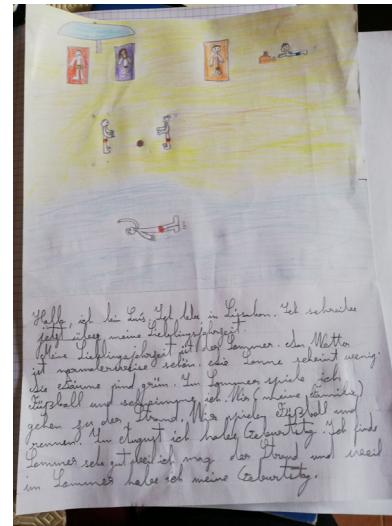 Hallo, ich bin Luís. Ich lebe in Lissabon. Ich schreibe
jetzt über meine Lieblingsjahrzeit.
Meine Lieblingsjahrzeit ist der Sommer. Das Wetter
ist normalerweise schön. Die Sonne scheint wenig.
Die Bäume sind grün. Im Sommer spiele ich
Fußball und schwimme ich. Wir (meine Familie)
gehen zu der Strand. Wir spielen Fußball und
rennen. Im August ich habe Geburtstag. Ich finde
Sommer sehr gut weil ich mag der Strand und weil
im Sommer habe ich meine Geburtstag.